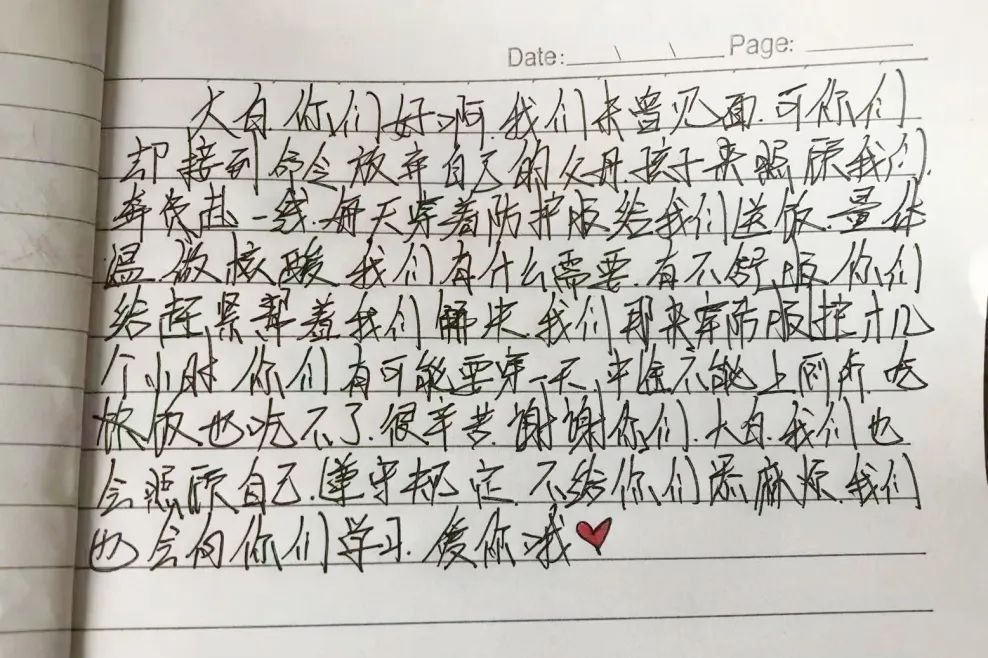 Date: \ \ Page:
大白.你们好啊.我们未曾见面.可你们
却接到命令放弃自己的父母.孩子来照顾我们.
奔赴一线.每天穿着防护服给我们送饭.量体
温.做核酸.我们有什么需要.有不舒服你们
给赶紧帮着我们解决.我们那来穿防服
个小时你们有可能要穿一天.不能上厕所.吃
快饭也吃不了.很辛苦.谢谢你们.大白.我们也
会照顾自己.遵守规定.不给你们添麻烦.我们
也会向你们学习.爱你哦